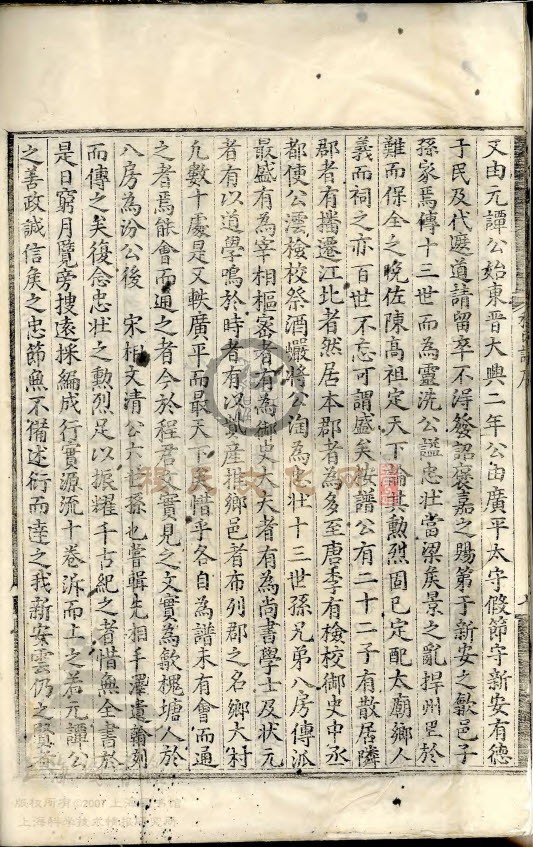 又由元譚公始東晉大興二年公由廣平太守假節守新安有德
于民及代遮道請留卒不淂發詔褒嘉之賜第于新安之歙邑子
孫家焉傳十三世而為靈洗公謚忠壯當梁矦景之亂捍州里於
難而保全之晚佐陳高祖定天下論其勲烈固已定配太廟鄉人
義而祠之亦百世不忘可謂盛矣按譜公有二十二子有散居隣
郡者有播遷江北者然居本郡者為多至唐季有檢校御史中丞
都使公澐檢校祭酒巗將公淘為忠壯十三世孫兄弟八房傳派
最盛有為宰相樞密者有為御史大夫者有為尚書學士及狀元
者有以道學鳴於時者有以貲產推鄉邑者布列郡之名鄉大村
凢數十處是又軼廣平而最天下矣惜乎各自為譜未有會而通
之者焉能會而通之者今於程君文實見之文實為歙槐塘人於
八房為汾公後 宋相文清公六世孫也嘗輯先相手澤遺翰刻
而傳之矣復念忠壯之勲烈足以振耀千古紀之者惜無全書於
是日窮月覽旁搜逺採編成行實源流十卷泝而上之若元譚公
之善政誠信矦之忠節無不備述衍而達之我新安雲仍之
版权所有©2007上海图书馆
上海科学技术情报研究所